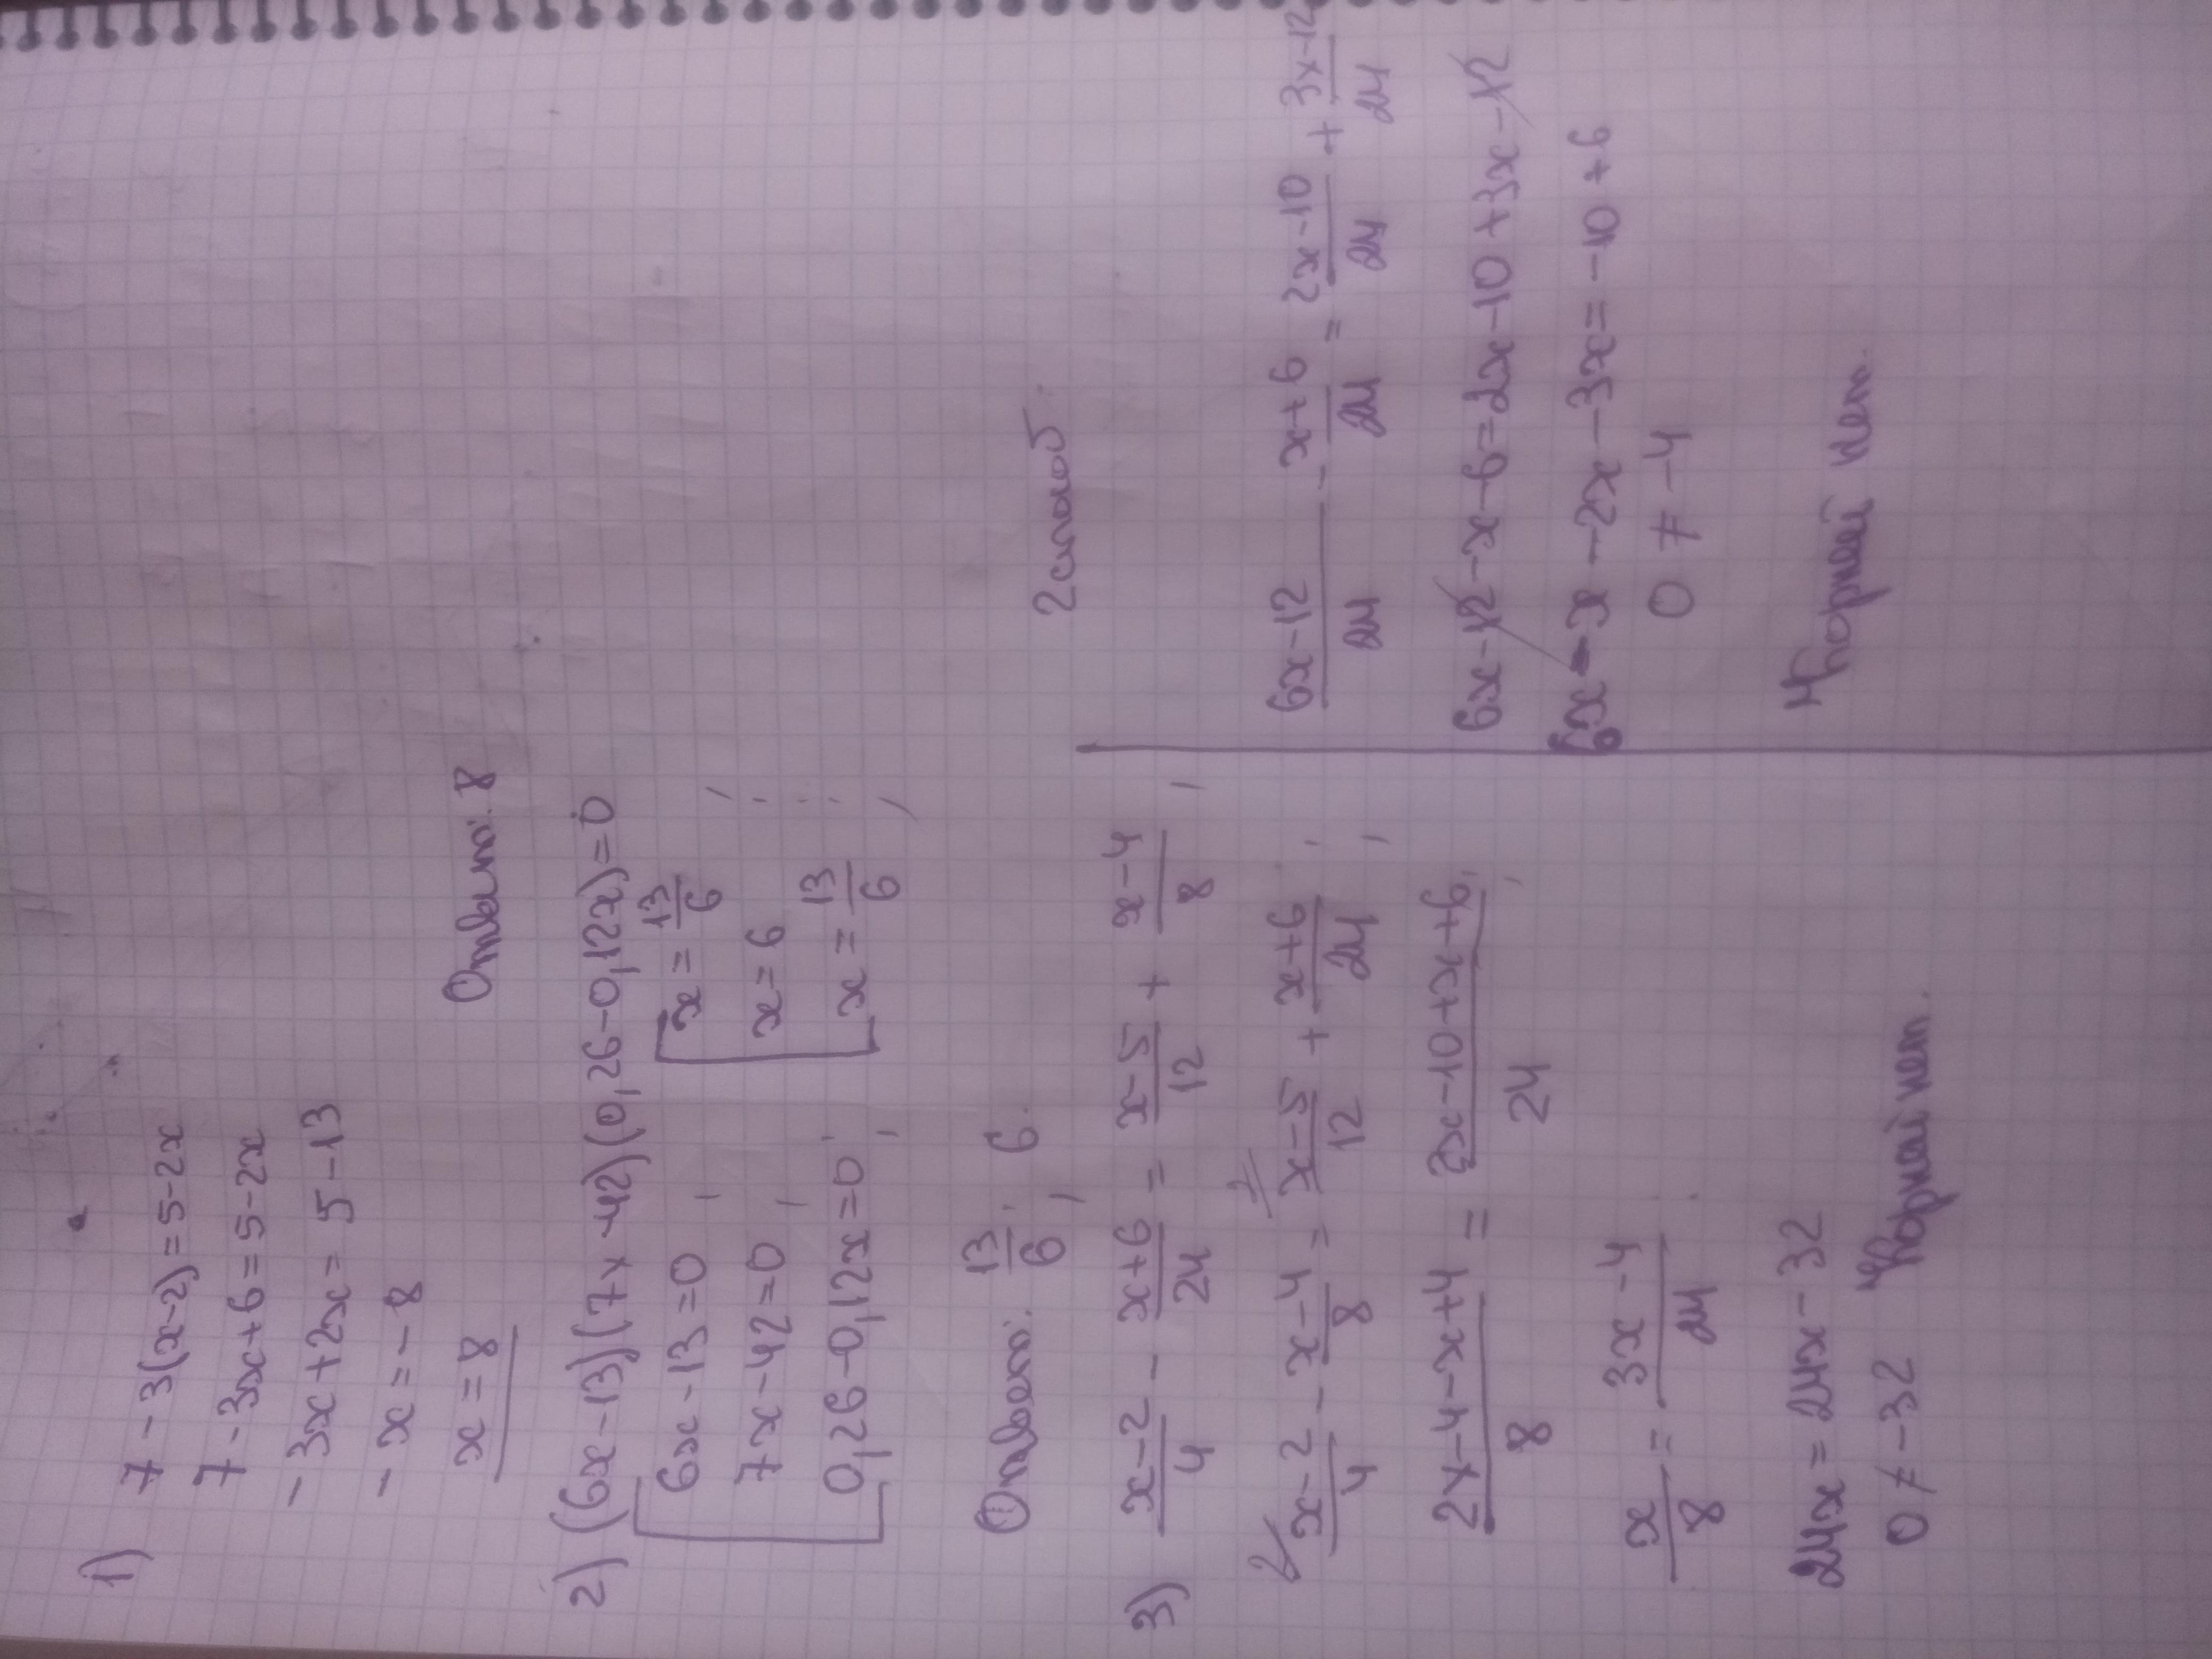 1) 7-3(x-2)=5-2x
7-3x+6=5-2x
-3x+2x=5-13
-x=-8
x=8
Ответ: 8
2) (6x-13)(7x-42)(0,26-0,12x)=0
6x-13=0 x=13/6
7x-42=0 x=6
0,26-0,12x=0 x=13/6
Ответ: 13/6; 6.
3) (x-2)/4 - (x+6)/24 = (x-5)/12 + (x-4)/8
2/ (x-2)/4 - (x-4)/8 = 2/ (x-5)/12 + (x+6)/24
(2x-4-x+4)/8 = (2x-10+x+6)/24
x/8 = (3x-4)/24
24x=24x-32
0≠-32 Корней нет.
2 способ.
(6x-12)/24 - (x+6)/24 = (2x-10)/24 + (3x-12)/24
6x-12-x-6=2x-10+3x-12
6x-x-2x-3x=-10+6
0≠-4
Корней нет.